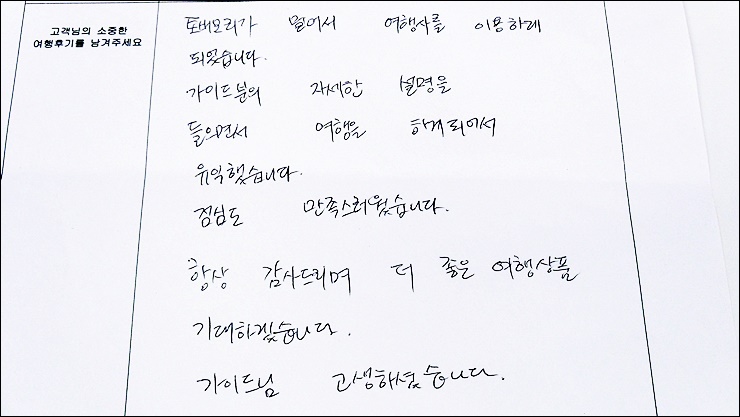 고객님의 소중한
여행후기를 남겨주세요
또바모리가 멀어서 여행사를 이용하게
되었습니다.
가이드분의 자세한 설명을
들으면서 여행을 하게되어서
유익했습니다.
점심도 만족스러웠습니다.
항상 감사드리며 더 좋은 여행상품
기대하겠습니다.
가이드님 고생하셨습니다.